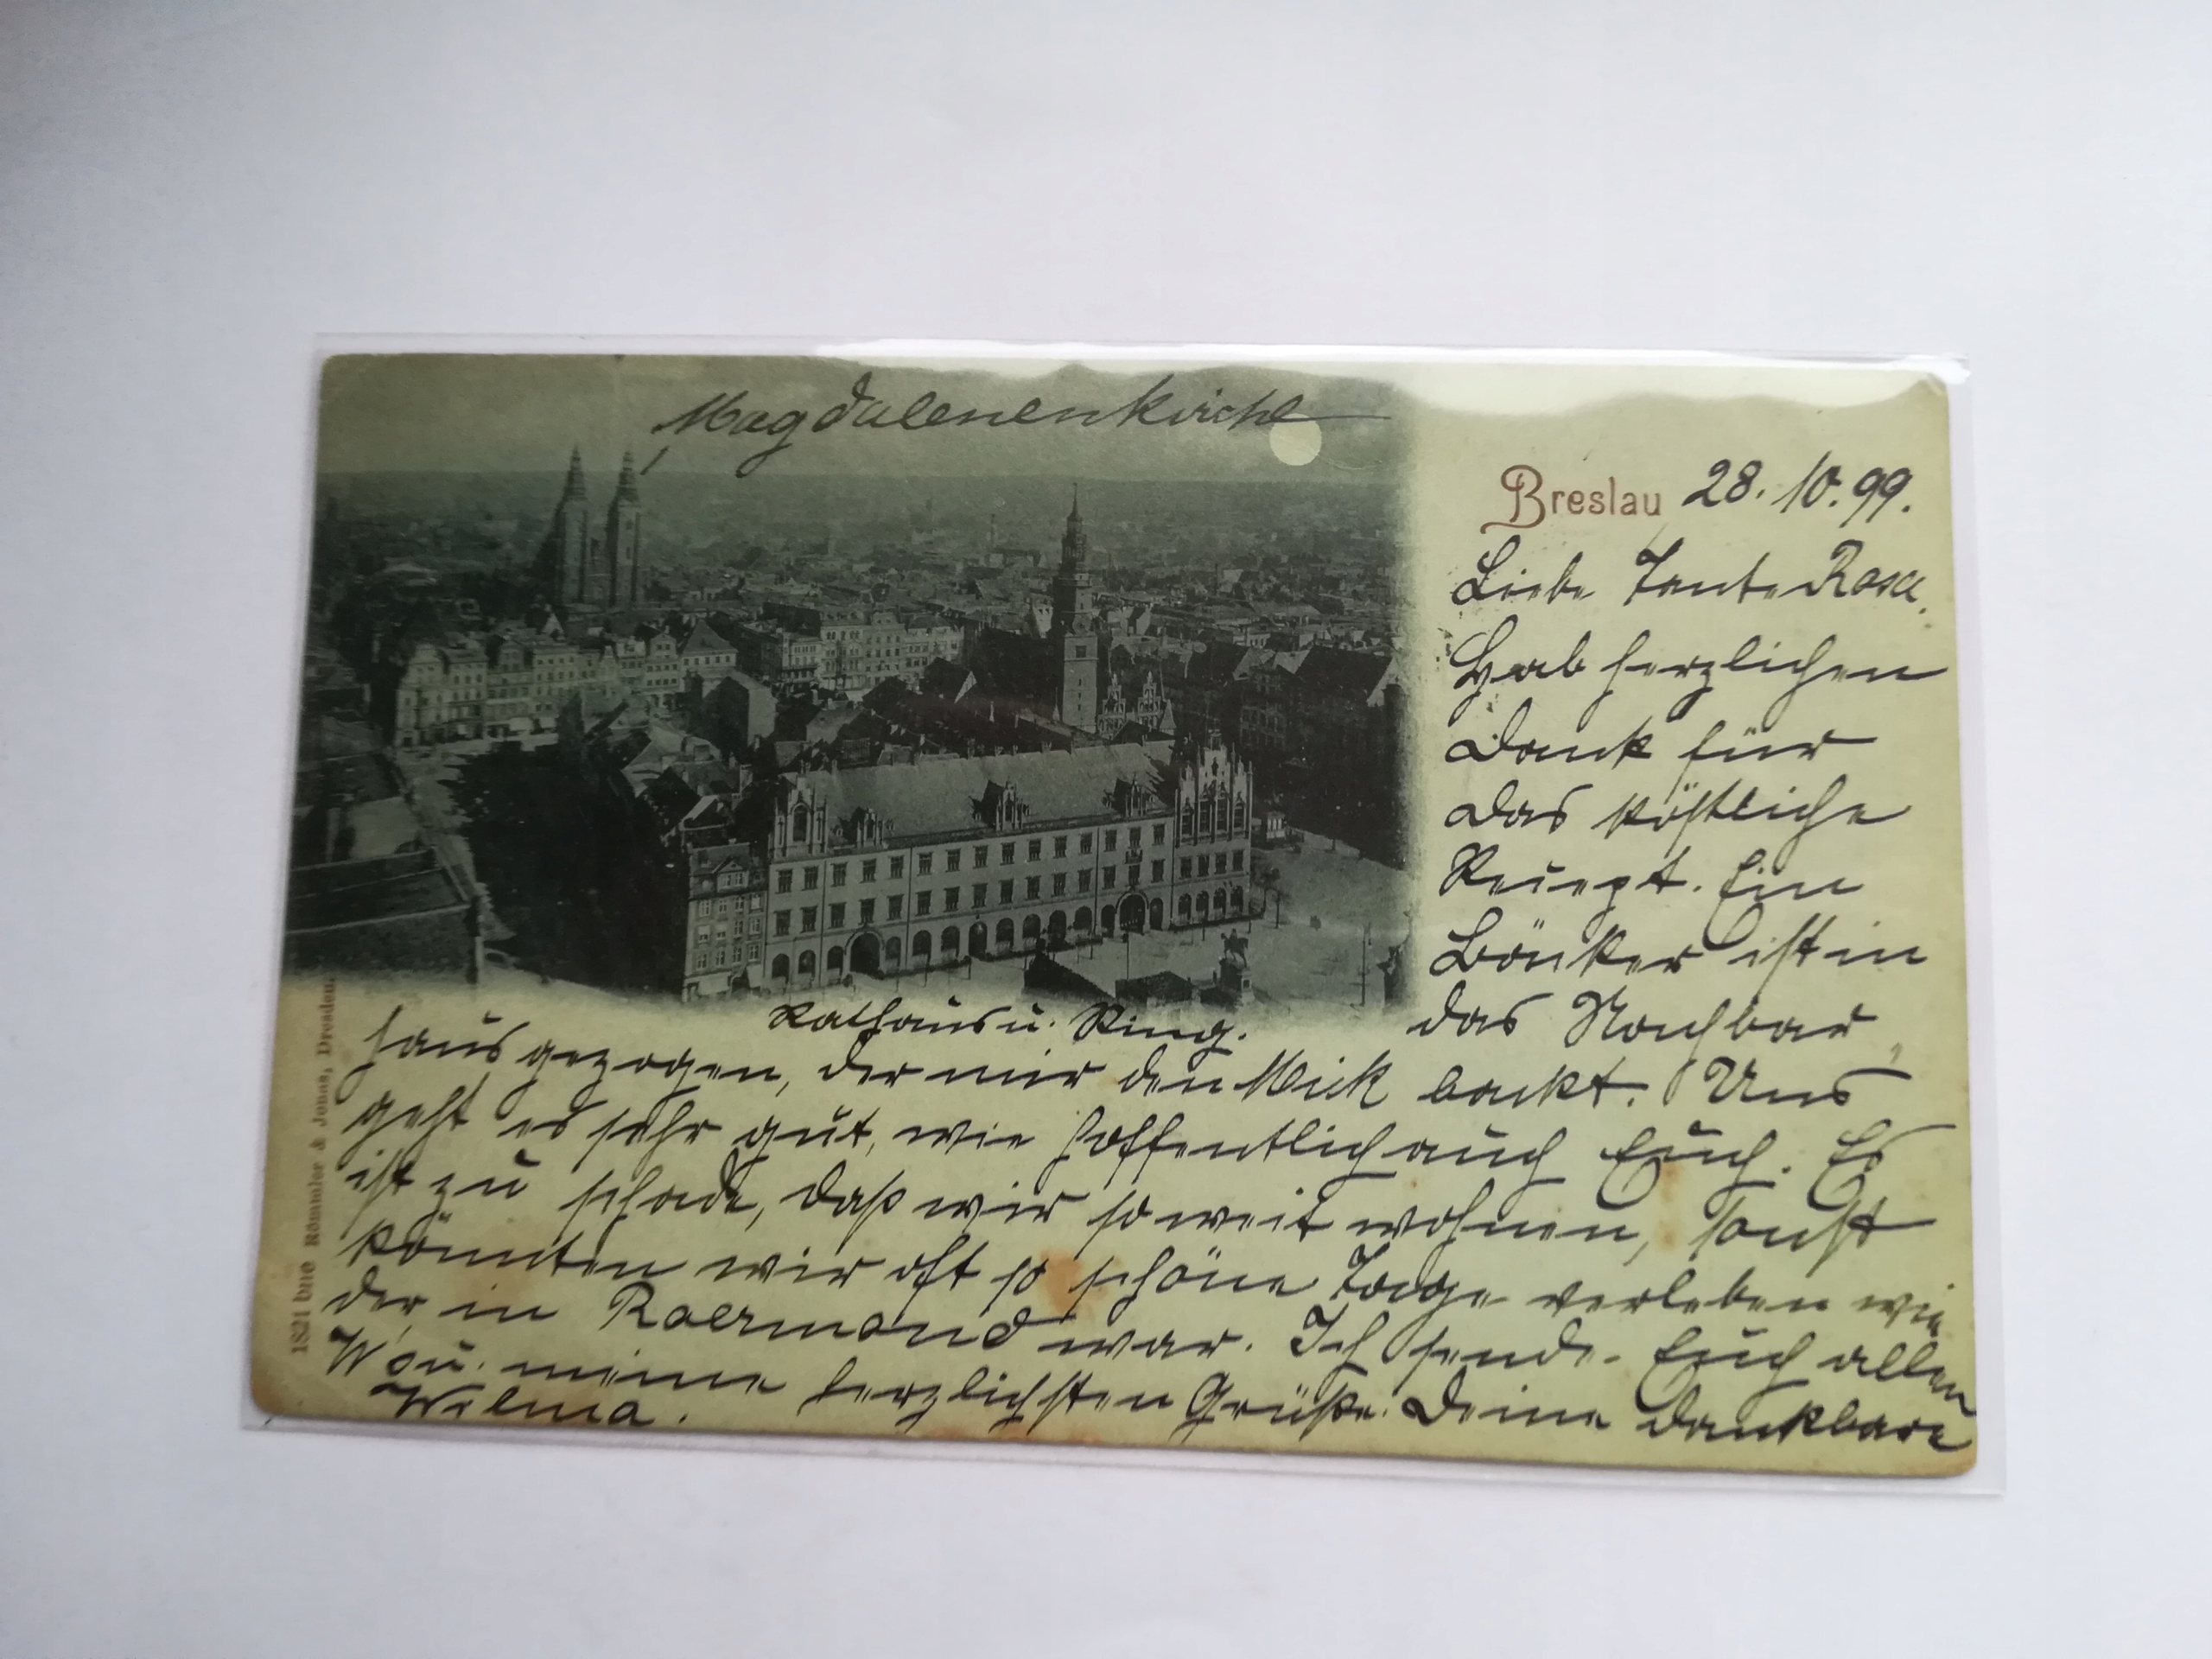 Magdalenenkirche
Breslau 28. 10. 99.
Liebe Tante Rosa.
Hab herzlichen
Dank für
das köstliche
Rezept. Ein
Bäcker ist in
das Nachbar
Rathaus u. Ring.
haus gezogen, der mir den backt. Uns
geht es sehr gut, wie hoffentlich auch Euch. Es
ist zu schade, daß wir so weit wohnen, sonst
könnten wir oft so schöne Tage verleben wie
der in Roermond war. Ich sende Euch allen
W u. meine herzlichsten Grüße. Deine dankbare
Wilma.
18211 bno Römmler & Jonas, Dresden.